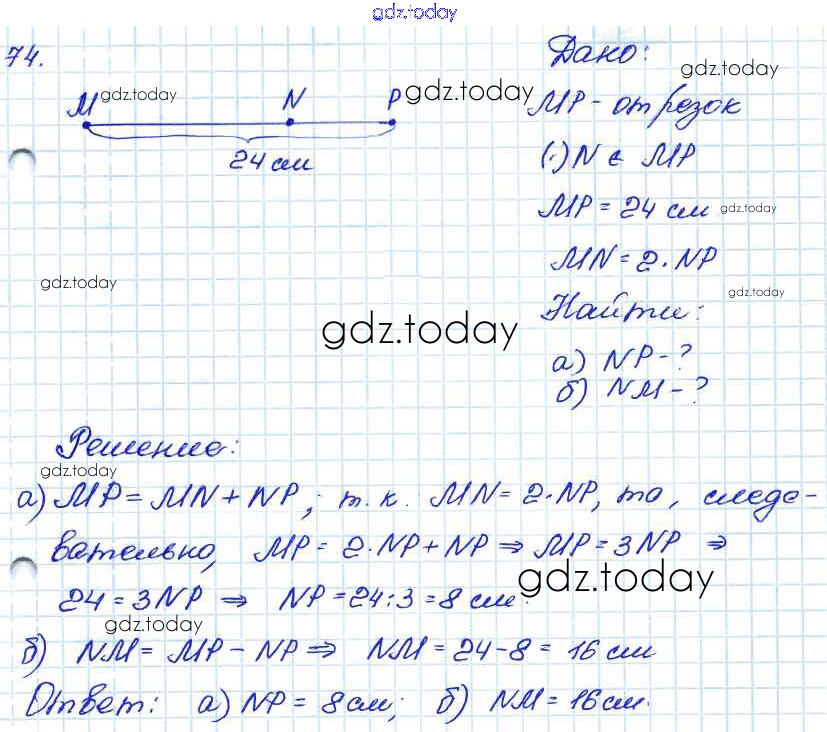 gdz.today
74.
Дано:
gdz.today
M gdz.today N P gdz.today
MP - отрезок
24 см
(·) N ∈ MP
MP = 24 см gdz.today
MN = 2·NP
gdz.today
gdz.today
Найти:
gdz.today
а) NP - ?
б) NM - ?
Решение:
gdz.today
а) MP = MN + NP, т.к. MN = 2·NP, то, следо-
вательно, MP = 2·NP + NP ⇒ MP = 3NP ⇒
gdz.today
24 = 3NP ⇒ NP = 24:3 = 8 см.
gdz.today
б) NM = MP - NP ⇒ NM = 24 - 8 = 16 см
Ответ: а) NP = 8 см; б) NM = 16 см.